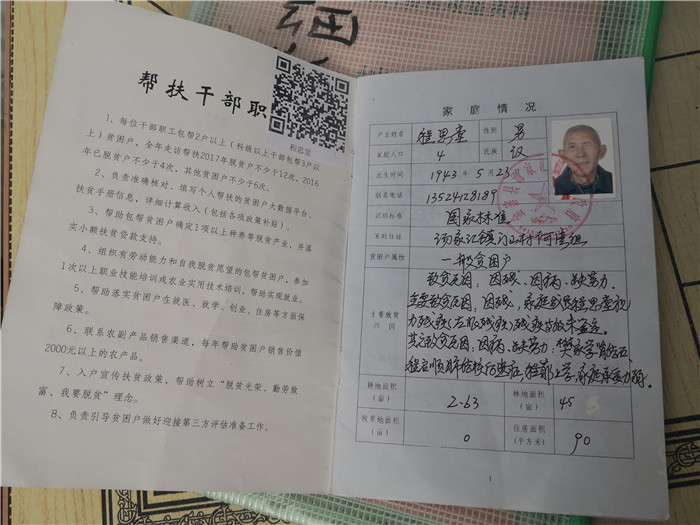 资料
帮扶干部职
程思堂
1、每位干部职工包帮2户以上（科级以上干部包帮3户以
上）贫困户，全年走访帮扶2017年脱贫户不少于12次，2016
年已脱贫户不少于4次，其他贫困户不少于6次。
2、负责准确核对、填写个人帮扶的贫困户大数据平台、
扶贫手册信息，详细计算收入（包括各项政策补贴）。
3、帮助包帮贫困户确定1项以上种养等脱贫产业，并落
实小额扶贫贷款支持。
4、组织有劳动能力和自我脱贫愿望的包帮贫困户，参加
1次以上职业技能培训或农业实用技术培训，帮助实现就业。
5、帮助落实贫困户在就医、就学、创业、住房等方面保
障政策。
6、联系农副产品销售渠道，每年帮助贫困户销售价值
2000元以上的农产品。
7、入户宣传扶贫政策，帮助树立“脱贫光荣、勤劳致
富、我要脱贫”理念。
8、负责引导贫困户做好迎接第三方评估准备工作。
家庭情况
户主姓名 程思堂 性别 男
家庭人口 4 民族 汉
出生时间 1943年5.23
联系电话 13524128189
识别标准 国家标准
家庭住址 汤家汇镇
贫困户属性 一般贫困户
主要致贫
原因
致贫原因，因残、因病、缺劳力。
主要致贫原因，因残，家庭成员程思堂视
力残疾
其它致贫原因，因病、缺劳力：
上学，家庭
耕地面积
（亩） 2.63 林地面积
（亩） 45
牧草地面积
（亩） 0 住房面积
（平方米） 90
1